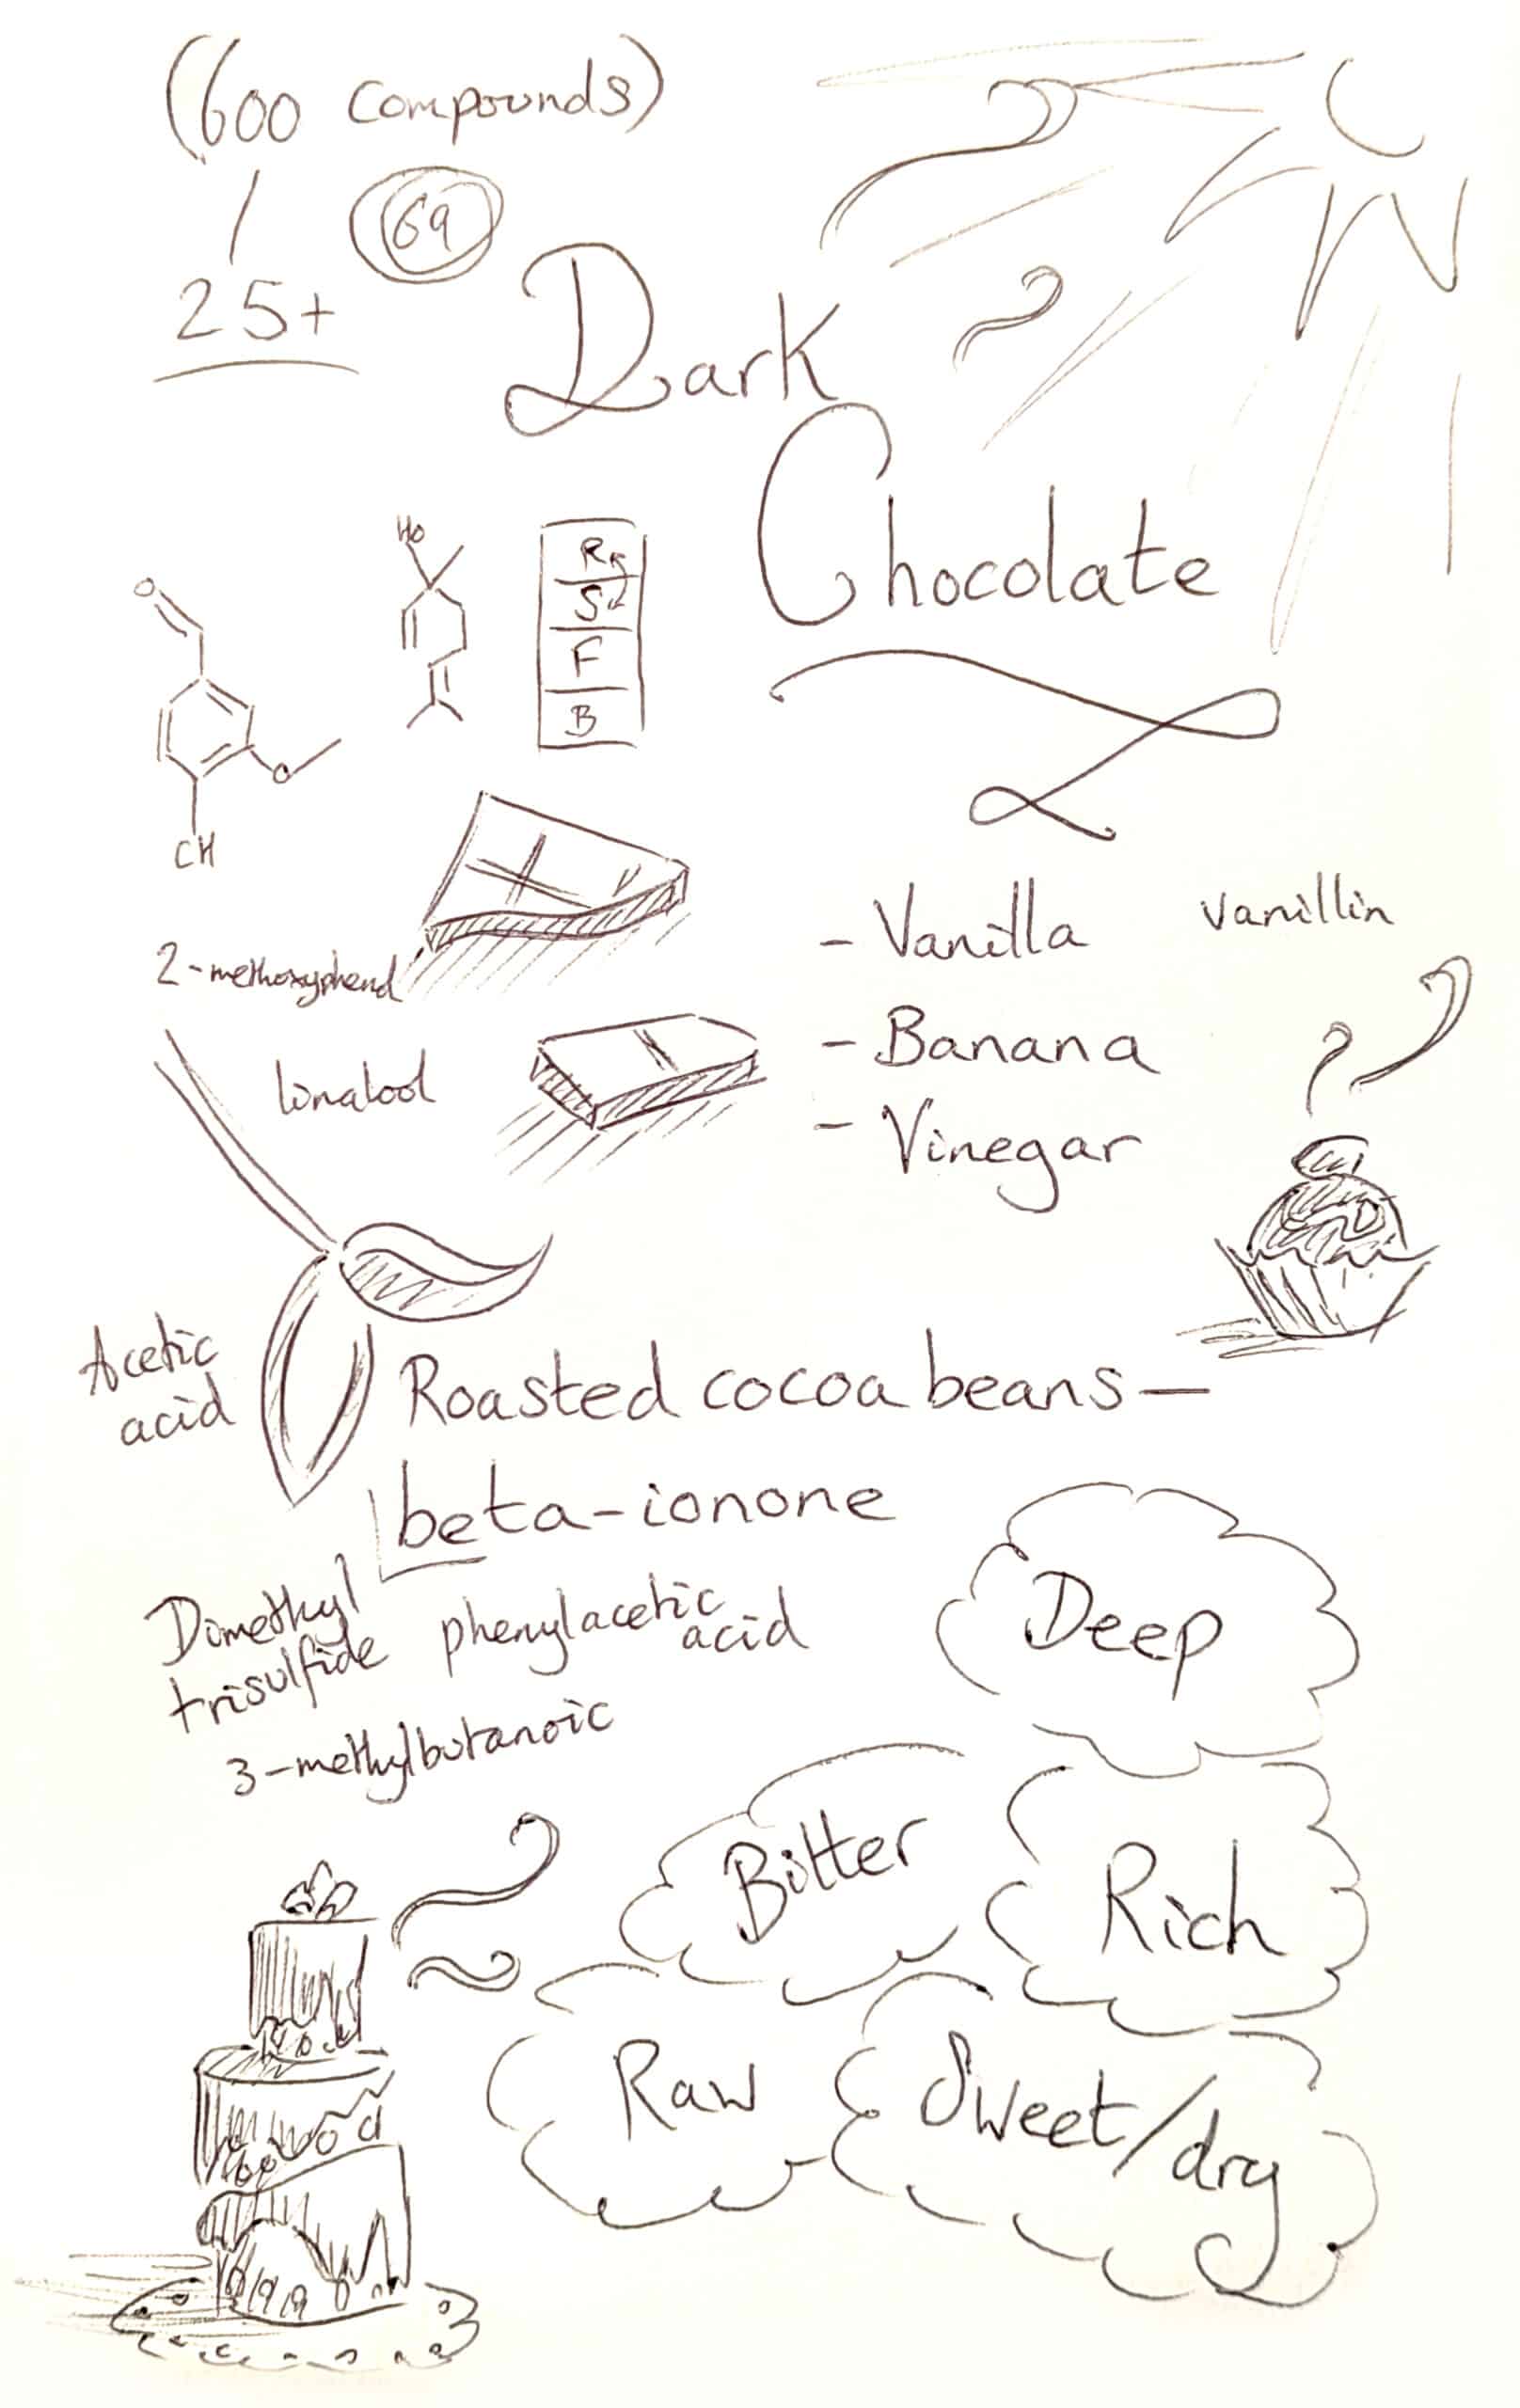 (600 compounds)
69
25+
Dark
Chocolate
HO
O
R
S
F
B
O
CH
- Vanilla
vanillin
2-methoxyphenol
- Banana
linalool
- Vinegar
Acetic
acid
Roasted cocoa beans—
beta-ionone
Dimethyl
trisulfide
phenylacetic
acid
3-methylbutanoic
Deep
Bitter
Rich
Raw
Sweet/dry